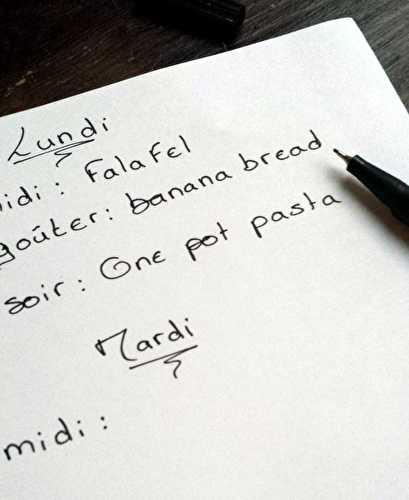 Lundi
midi : Falafel
goûter : banana bread
soir : One pot pasta
Mardi
midi :